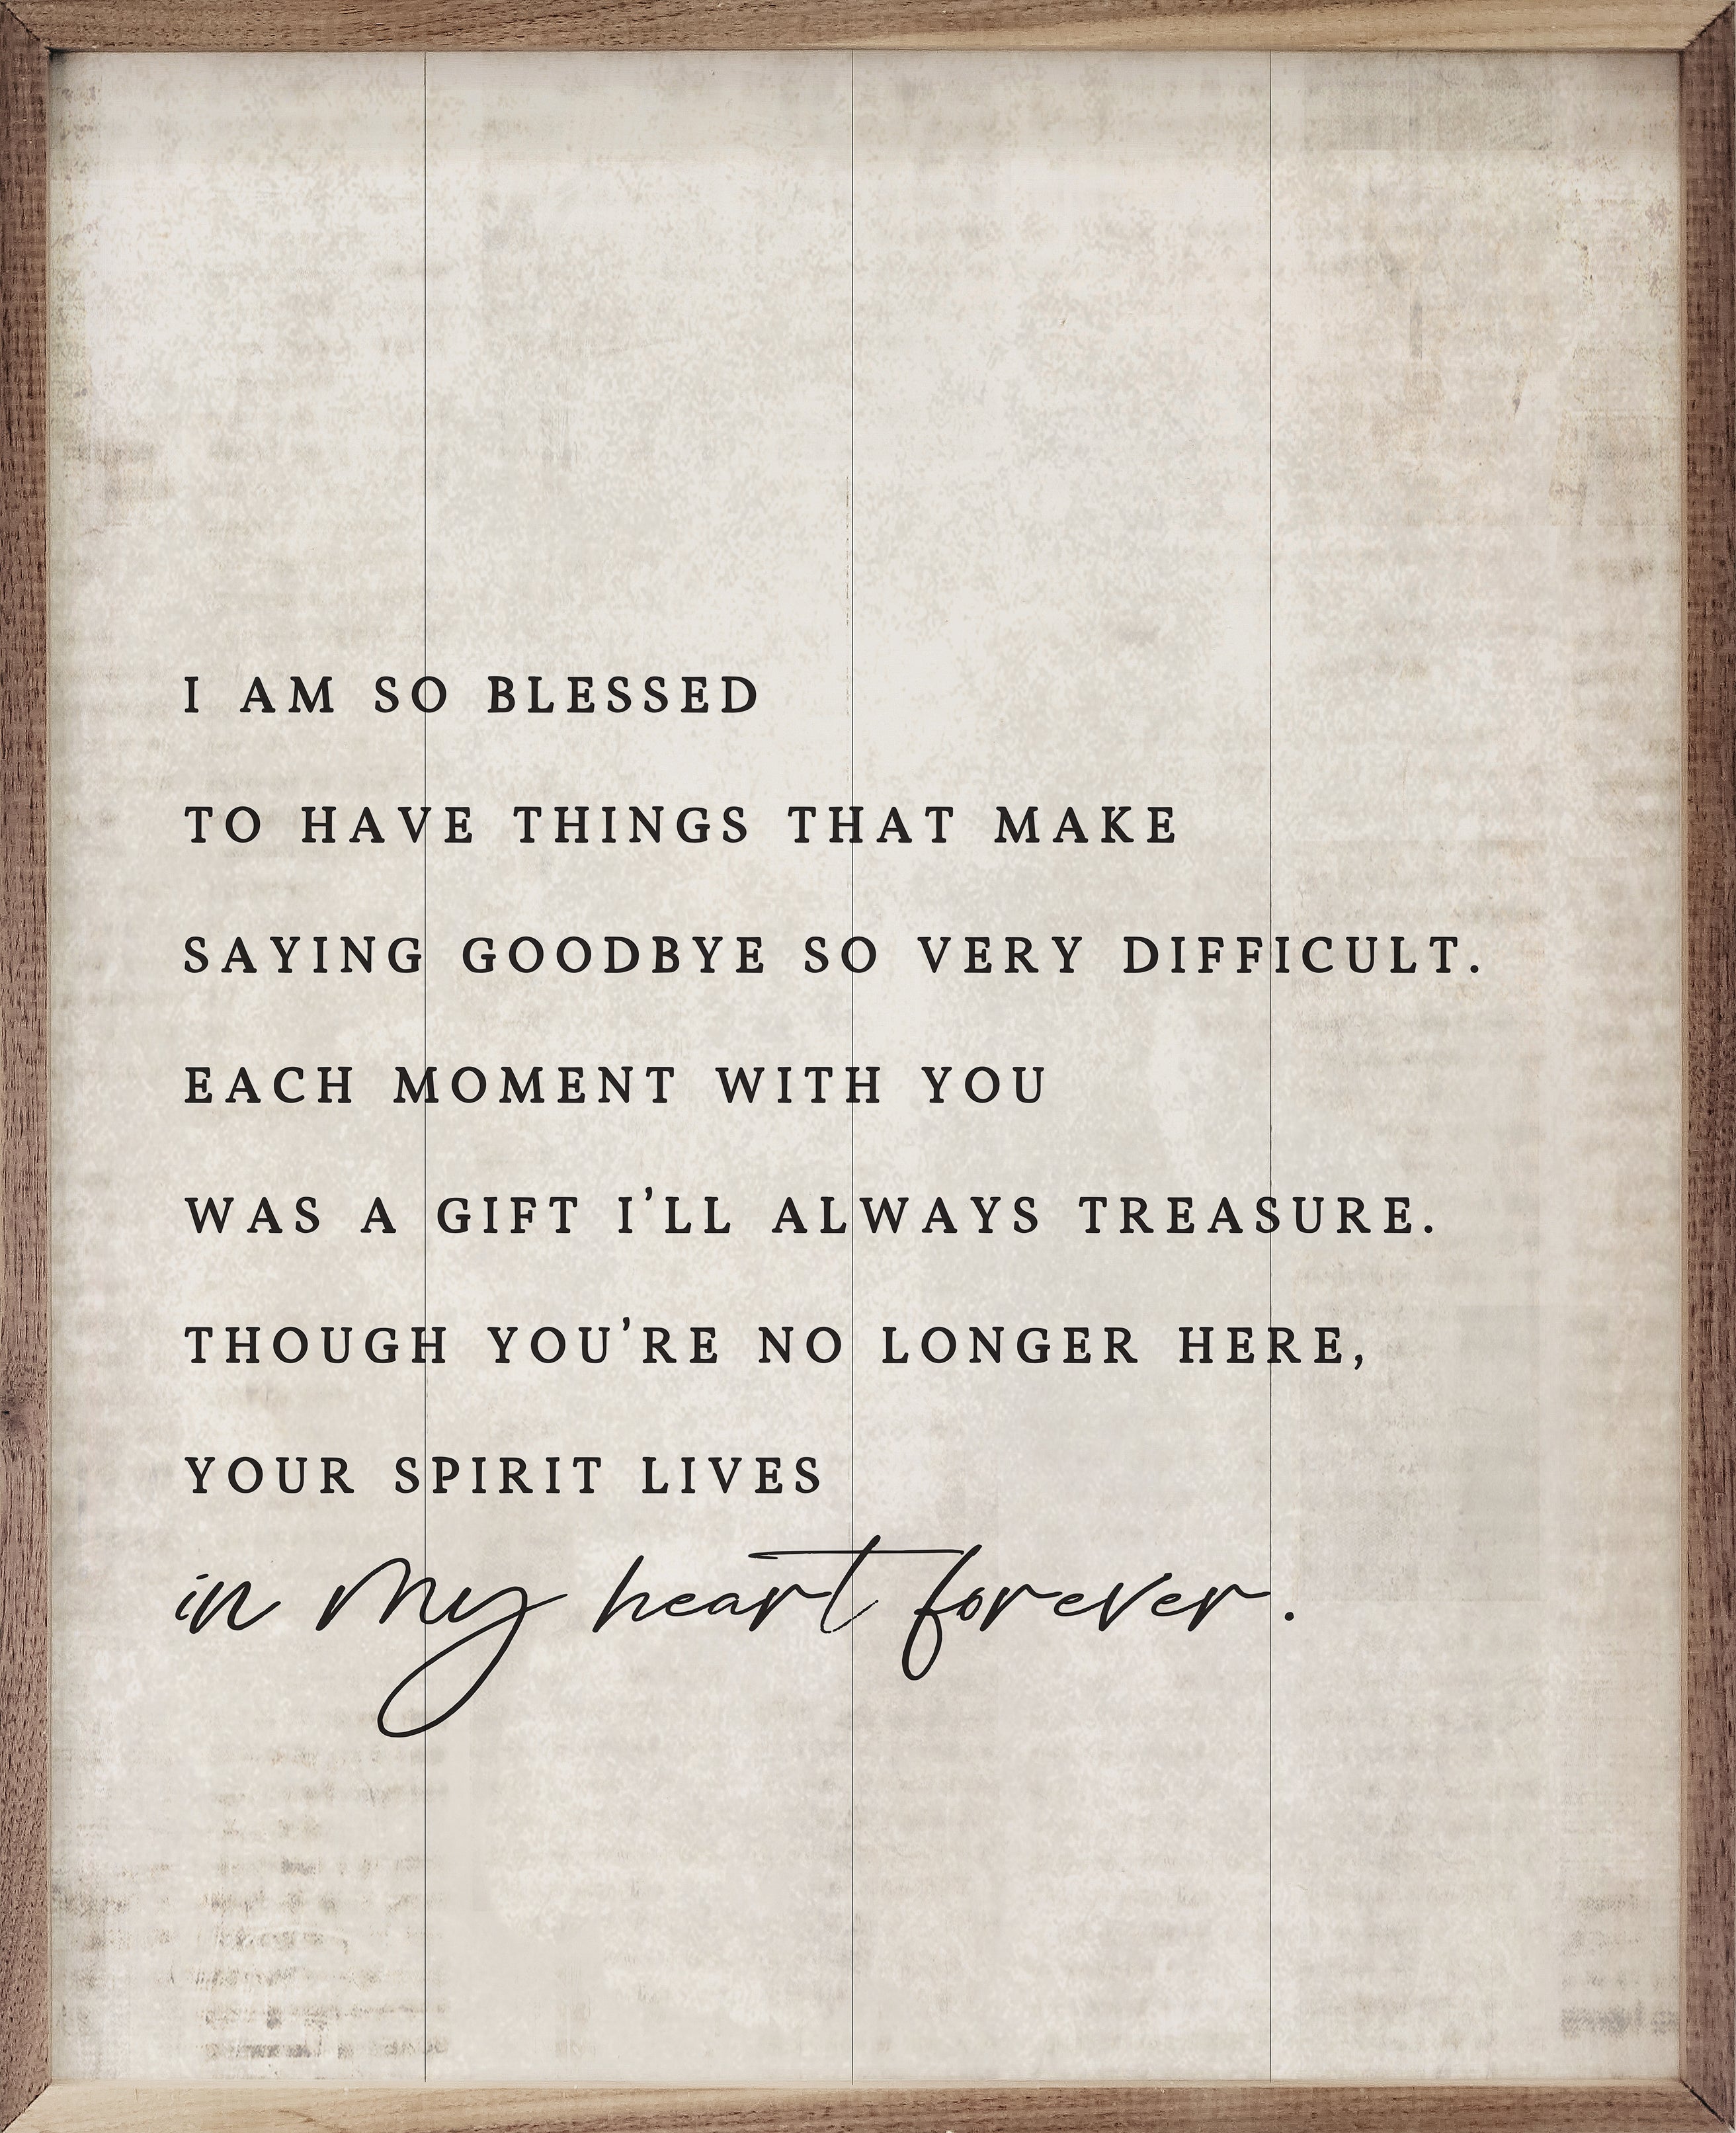 I AM SO BLESSED
TO HAVE THINGS THAT MAKE
SAYING GOODBYE SO VERY DIFFICULT.
EACH MOMENT WITH YOU
WAS A GIFT I'LL ALWAYS TREASURE.
THOUGH YOU'RE NO LONGER HERE,
YOUR SPIRIT LIVES
in my heart forever.